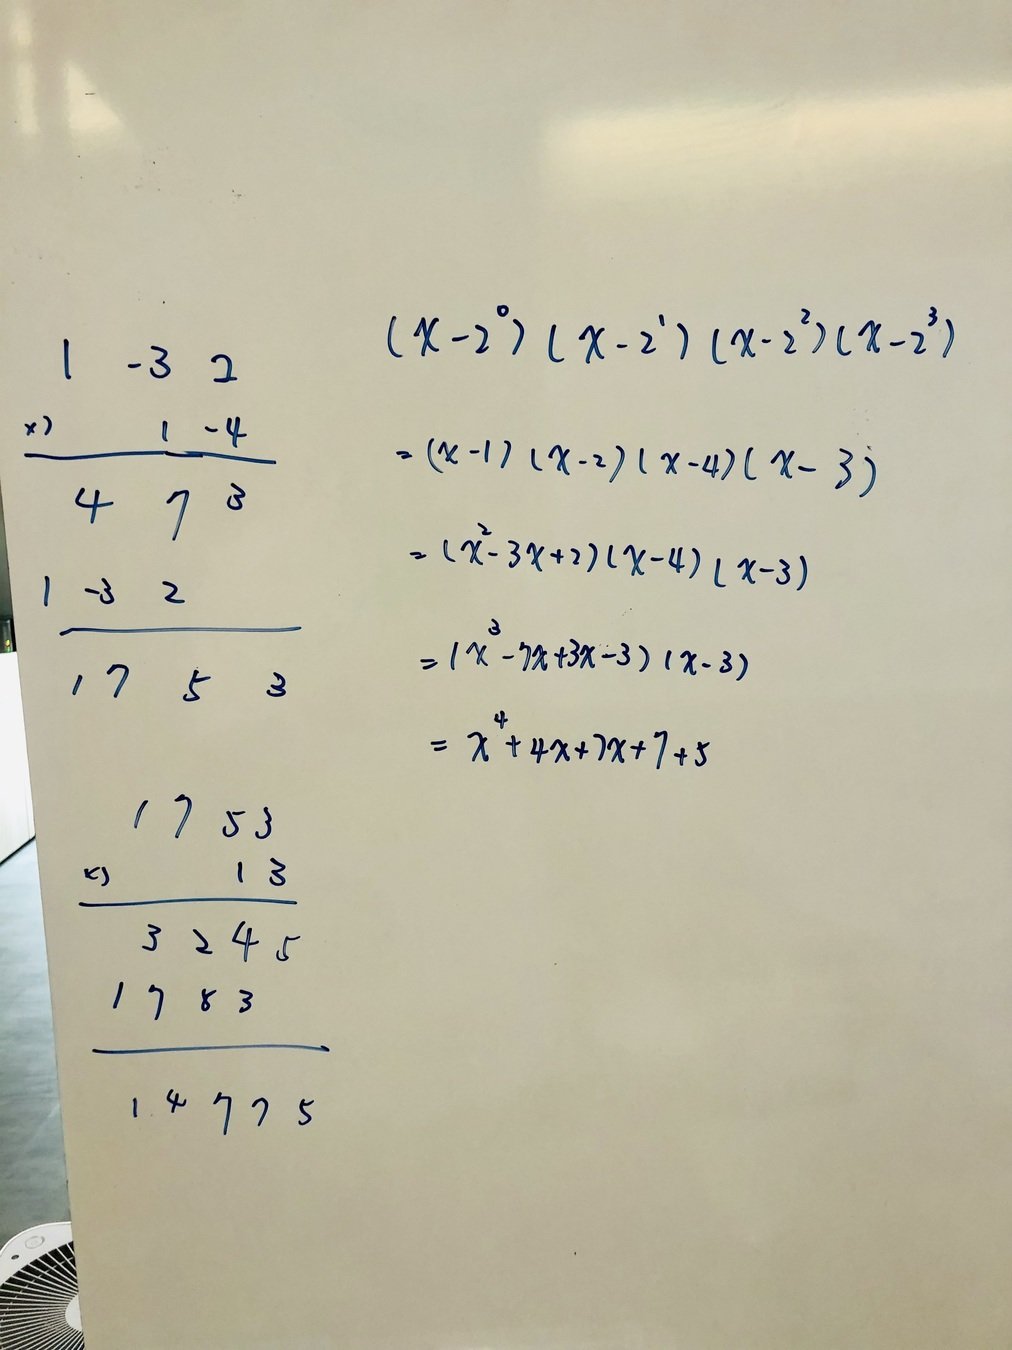 1 -3 2
x) 1 -4
4 7 3
1 -3 2
1 7 5 3
1 7 5 3
x) 1 3
3 2 4 5
1 7 8 3
1 4 7 7 5
(x-2⁰)(x-2¹)(x-2²)(x-2³)
=(x-1)(x-2)(x-4)(x-3)
=(x²-3x+2)(x-4)(x-3)
=(x³-7x+3x-3)(x-3)
= x⁴+4x+7x+7+5